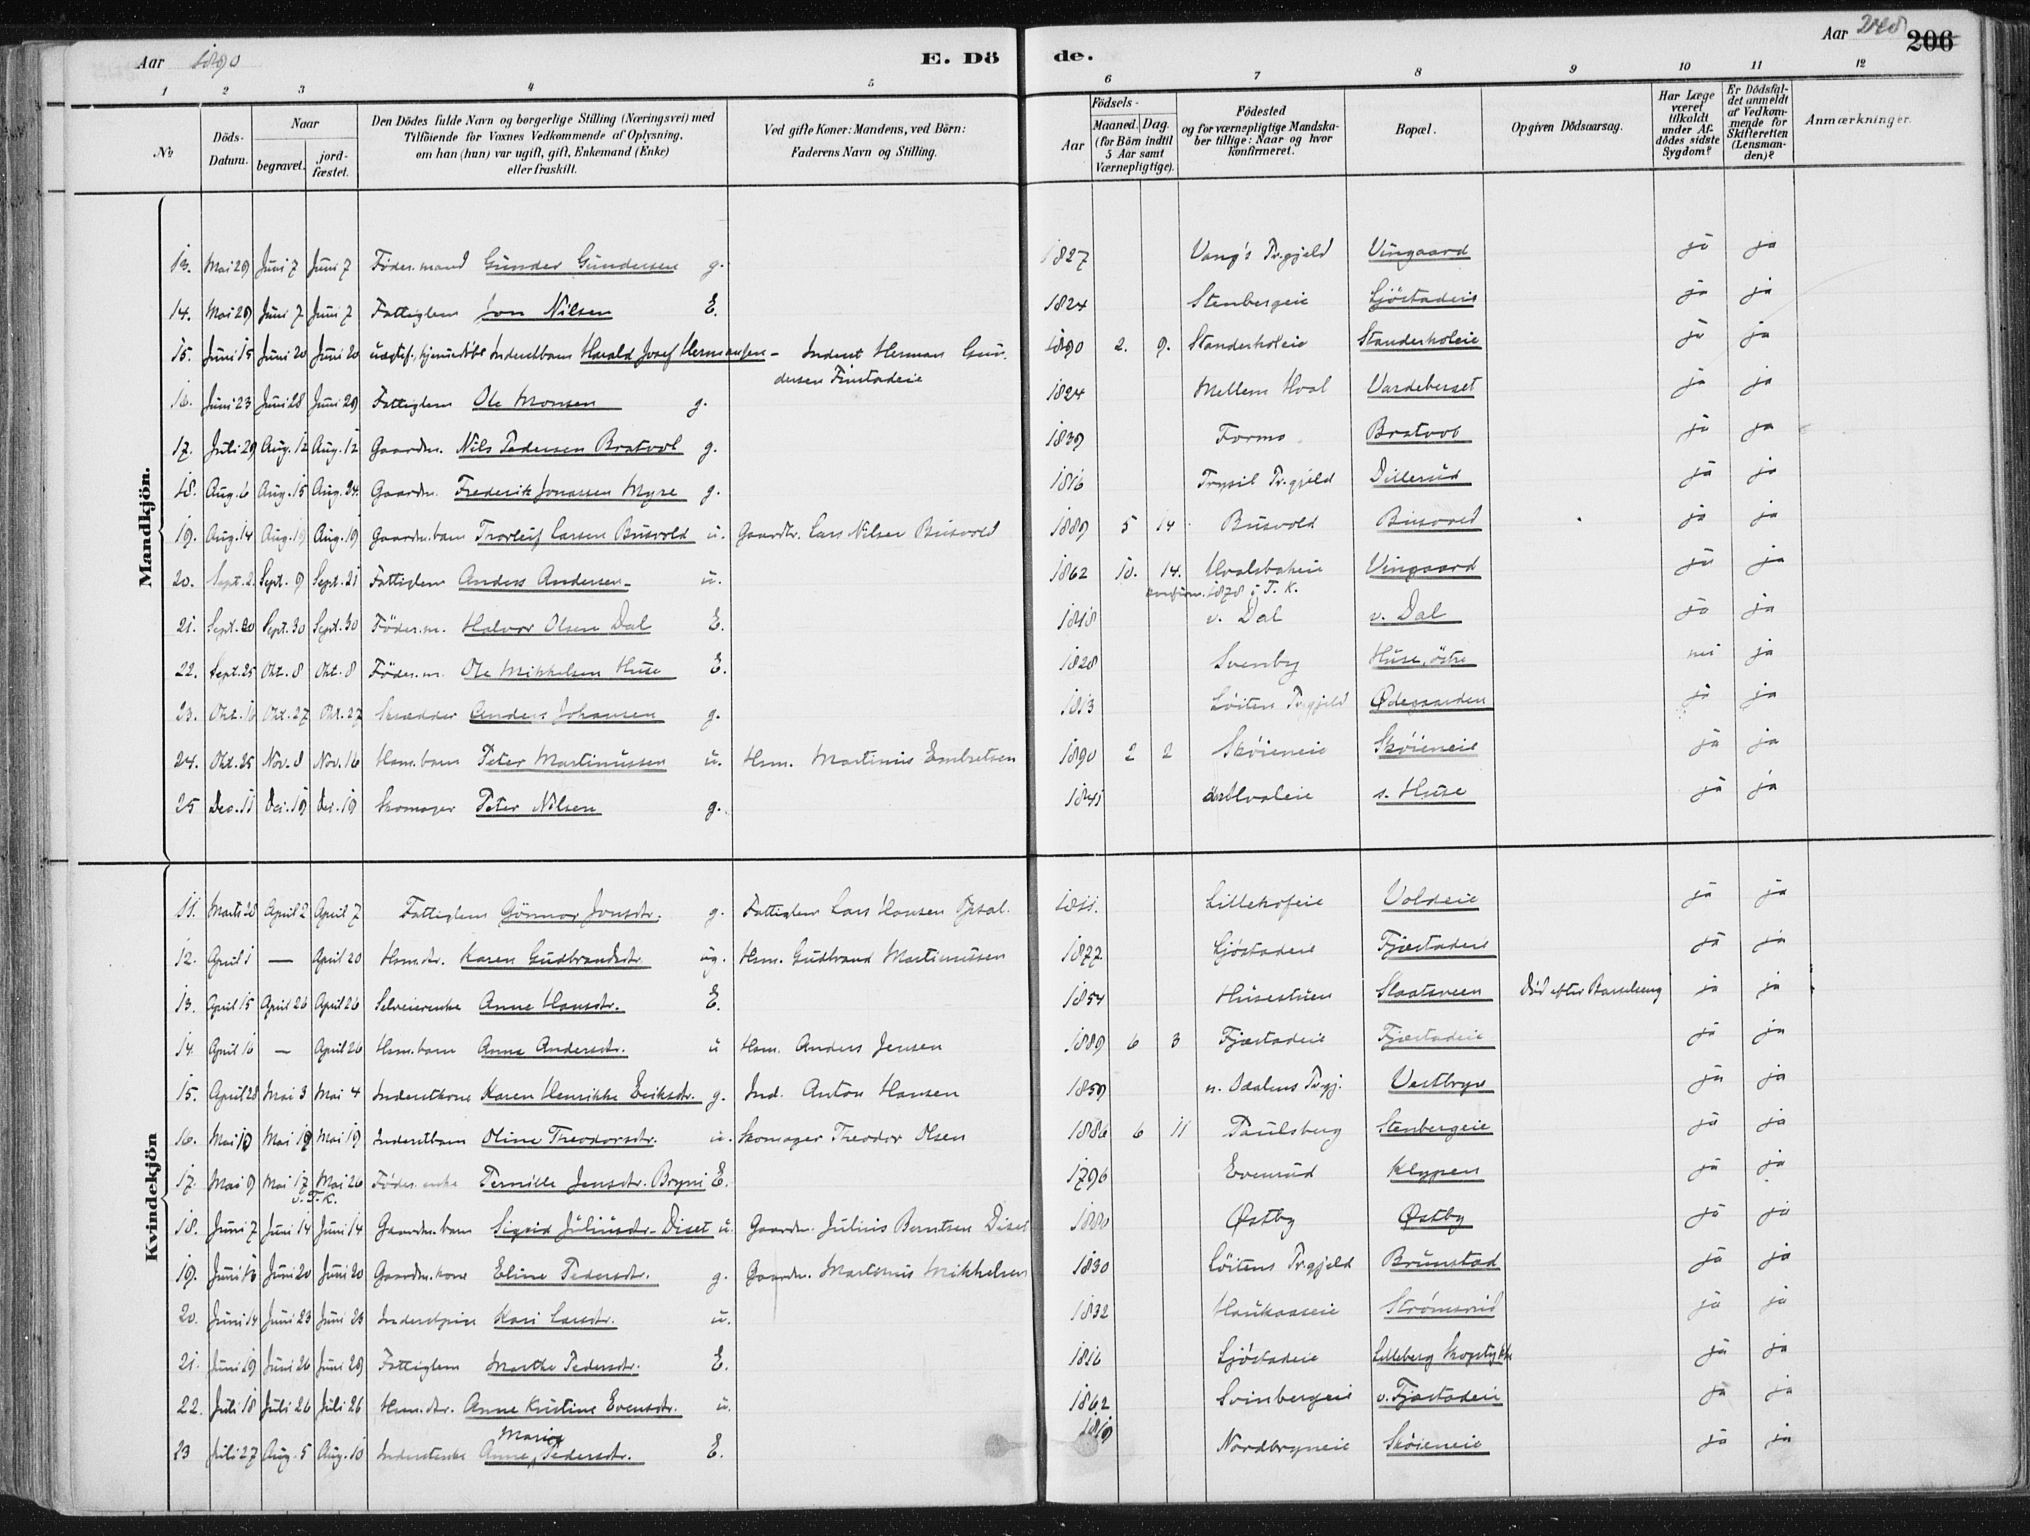 Aar 1890 E. Dö de. Aar 206
1 2 3 4 5 6 7 8 9 10 11 12
№
Döds-Datum.
Naar
begravet. jord-fæstet.
Den Dödes fulde Navn og borgerlige Stilling (Næringsvei) med
Tilföiende for Voxnes Vedkommende af Oplysning,
om han (hun) var ugift, gift, Enkemand (Enke)
eller fraskilt.
Ved gifte Koner: Mandens, ved Börn:
Faderens Navn og Stilling.
Födsels-
Aar
Maaned. Dag.
(for Börn indtil
5 Aar samt
Værnepligtige).
Födested
og for værnepligtige Mandska-
ber tillige: Naar og hvor
Konfirmeret.
Bopæl.
Opgiven Dödsaarsag.
Har Læge
været
tilkaldt
under Af-
dödes sidste
Sygdom?
Er Dödsfal-
det anmeldt
af Vedkom-
mende for
Skifteretten
(Lensman-
den)?
Anmærkninger.
Mandkjön.
13. Mai 29 Juni 7 Juni 7 Föder.mand Gunder Gundersen g. 1827 Vang's Pr.gjeld Vingaard ja ja
14. Mai 29 Juni 7 Juni 7 Fattiglem Jon Nilsen E. 1824 Stenbergeie Sjöstadeie ja ja
15. Juni 15 Juni 20 Juni 20 uægtef. hjemmedöbt Inderstbarn Harald Josef Hermansen - Inderst Herman Gun- 1890 2. 9. Standerholeie Standerholeie ja ja
dersen Finstadeie
16. Juni 23 Juni 28 Juni 29 Fattiglem Ole Monsen g. 1824 Mellem Hval Vardeberget ja ja
17. Juli 29 Aug. 12 Aug. 12 Gaardm. Nils Pedersen Bratvol g. 1839 Formo Bratvol ja ja
18. Aug. 6 Aug. 15 Aug. 24. Gaardm. Frederik Jonassen Myre g. 1816 Trysil Pr.gjeld Dillerud ja ja
19. Aug. 14 Aug. 19 Aug. 19 Gaardm.barn Thorleif Larsen Busvold u. Gaardbr. Lars Nilsen Busvold 1889 5 14 Busvold Busvold ja ja
20. Sept. 2. Sept. 9 Sept. 21 Fattiglem Anders Andersen u. 1862 10. 14. Hvalsbakeie Vingaard ja ja
confirm. 1878 i T. K.
21. Sept. 20 Sept. 30 Sept. 30 Föder.m. Halvor Olsen Dal E. 1818 v. Dal v. Dal ja ja
22. Sept. 25 Okt. 8 Okt. 8 Föder.m. Ole Mikkelsen Huse E. 1828 Svenby Huse, östre nei ja
23. Okt. 16 Okt. 27 Okt. 27 Skrædder Anders Johansen g. 1813 Löiten Pr.gjeld Ødegaarden ja ja
24. Okt. 25 Nov. 8 Nov. 16 Hsm.barn Peter Martinussen u. Hsm. Martinus Embretsen 1890 2 2 Skóieneie Skóieneie ja ja
25 Dec. 11 Dec. 19 Dec. 19 Skomager Peter Nilsen g. 1841 Hvaleie s. Huse ja ja
Kvindekjön
11. Marts 28 April 2 April 7 Fattiglem Gönnor Jonsdtr. g. Fattiglem Lars Hansen Opsal. 1811. Lillehofeie Voldeie ja ja
12. April 1 — April 20 Hsm.dtr. Karen Gudbrandsdtr. ug. Hsm. Gudbrand Martinussen 1877 Sjöstadeie Fjæstadeie ja ja
13. April 15 April 26 April 26 Selveierenke Anne Hansdtr. E. 1854 Husestuen Slaatsveen Död efter Barselseng ja ja
14. April 16 — April 26 Hsm.barn Anna Andersdtr. u Hsm. Anders Jensen 1889 6 3 Fjæstadeie Fjæstadeie ja ja
15. April 28 Mai 3 Mai 4 Inderstkone Karen Henrikke Eriksdtr. g. Ind. Anton Hansen 1859 n. Odalens Pr.gj. Vestbryn ja ja
16. Mai 10 Mai 19 Mai 19 Inderstbarn Oline Theodorsdtr. u. Skomager Theodor Olsen 1886 6 11 Paulsberg Stenbergeie ja ja
17. Mai 9 Mai 17 Mai 26 Föder.enke Pernille Jensdtr. Bryni E. 1796 Evenrud Klypen ja ja
v. T. K.
18. Juni 7 Juni 14 Juni 14 Gaardm.barn Sigrid Juliusdtr. Diset u. Gaardm. Julius Berntsen Diset Østby Østby ja ja
19. Juni 13 Juni 20 Juni 20 Gaardm.kone Eline Pedersdtr. g. Gaardm. Martinus Mikkelsen 1830 Löitens Pr.gjeld Brunstad ja ja
20. Juni 14 Juni 23 Juni 23 Inderstpige Kari Larsdtr. u. 1832 Haukaaseie Strömsrud ja ja
21. Juni 19 Juni 26 Juni 29 Fattiglem Marthe Pedersdtr. E. 1816 Sjöstadeie Lilleberg Skovstykke ja ja
22. Juli 18 Juli 26 Juli 26 Hsm.dtr. Anne Kristine Evensdtr. u. 1862 Svinbergeie v. Fjæstadeie ja ja
23 Juli 27 Aug. 5 Aug. 10 Inderstenke Anne Marie Pedersdtr. E. 1819 Nordbryneie Skóieneie ja ja